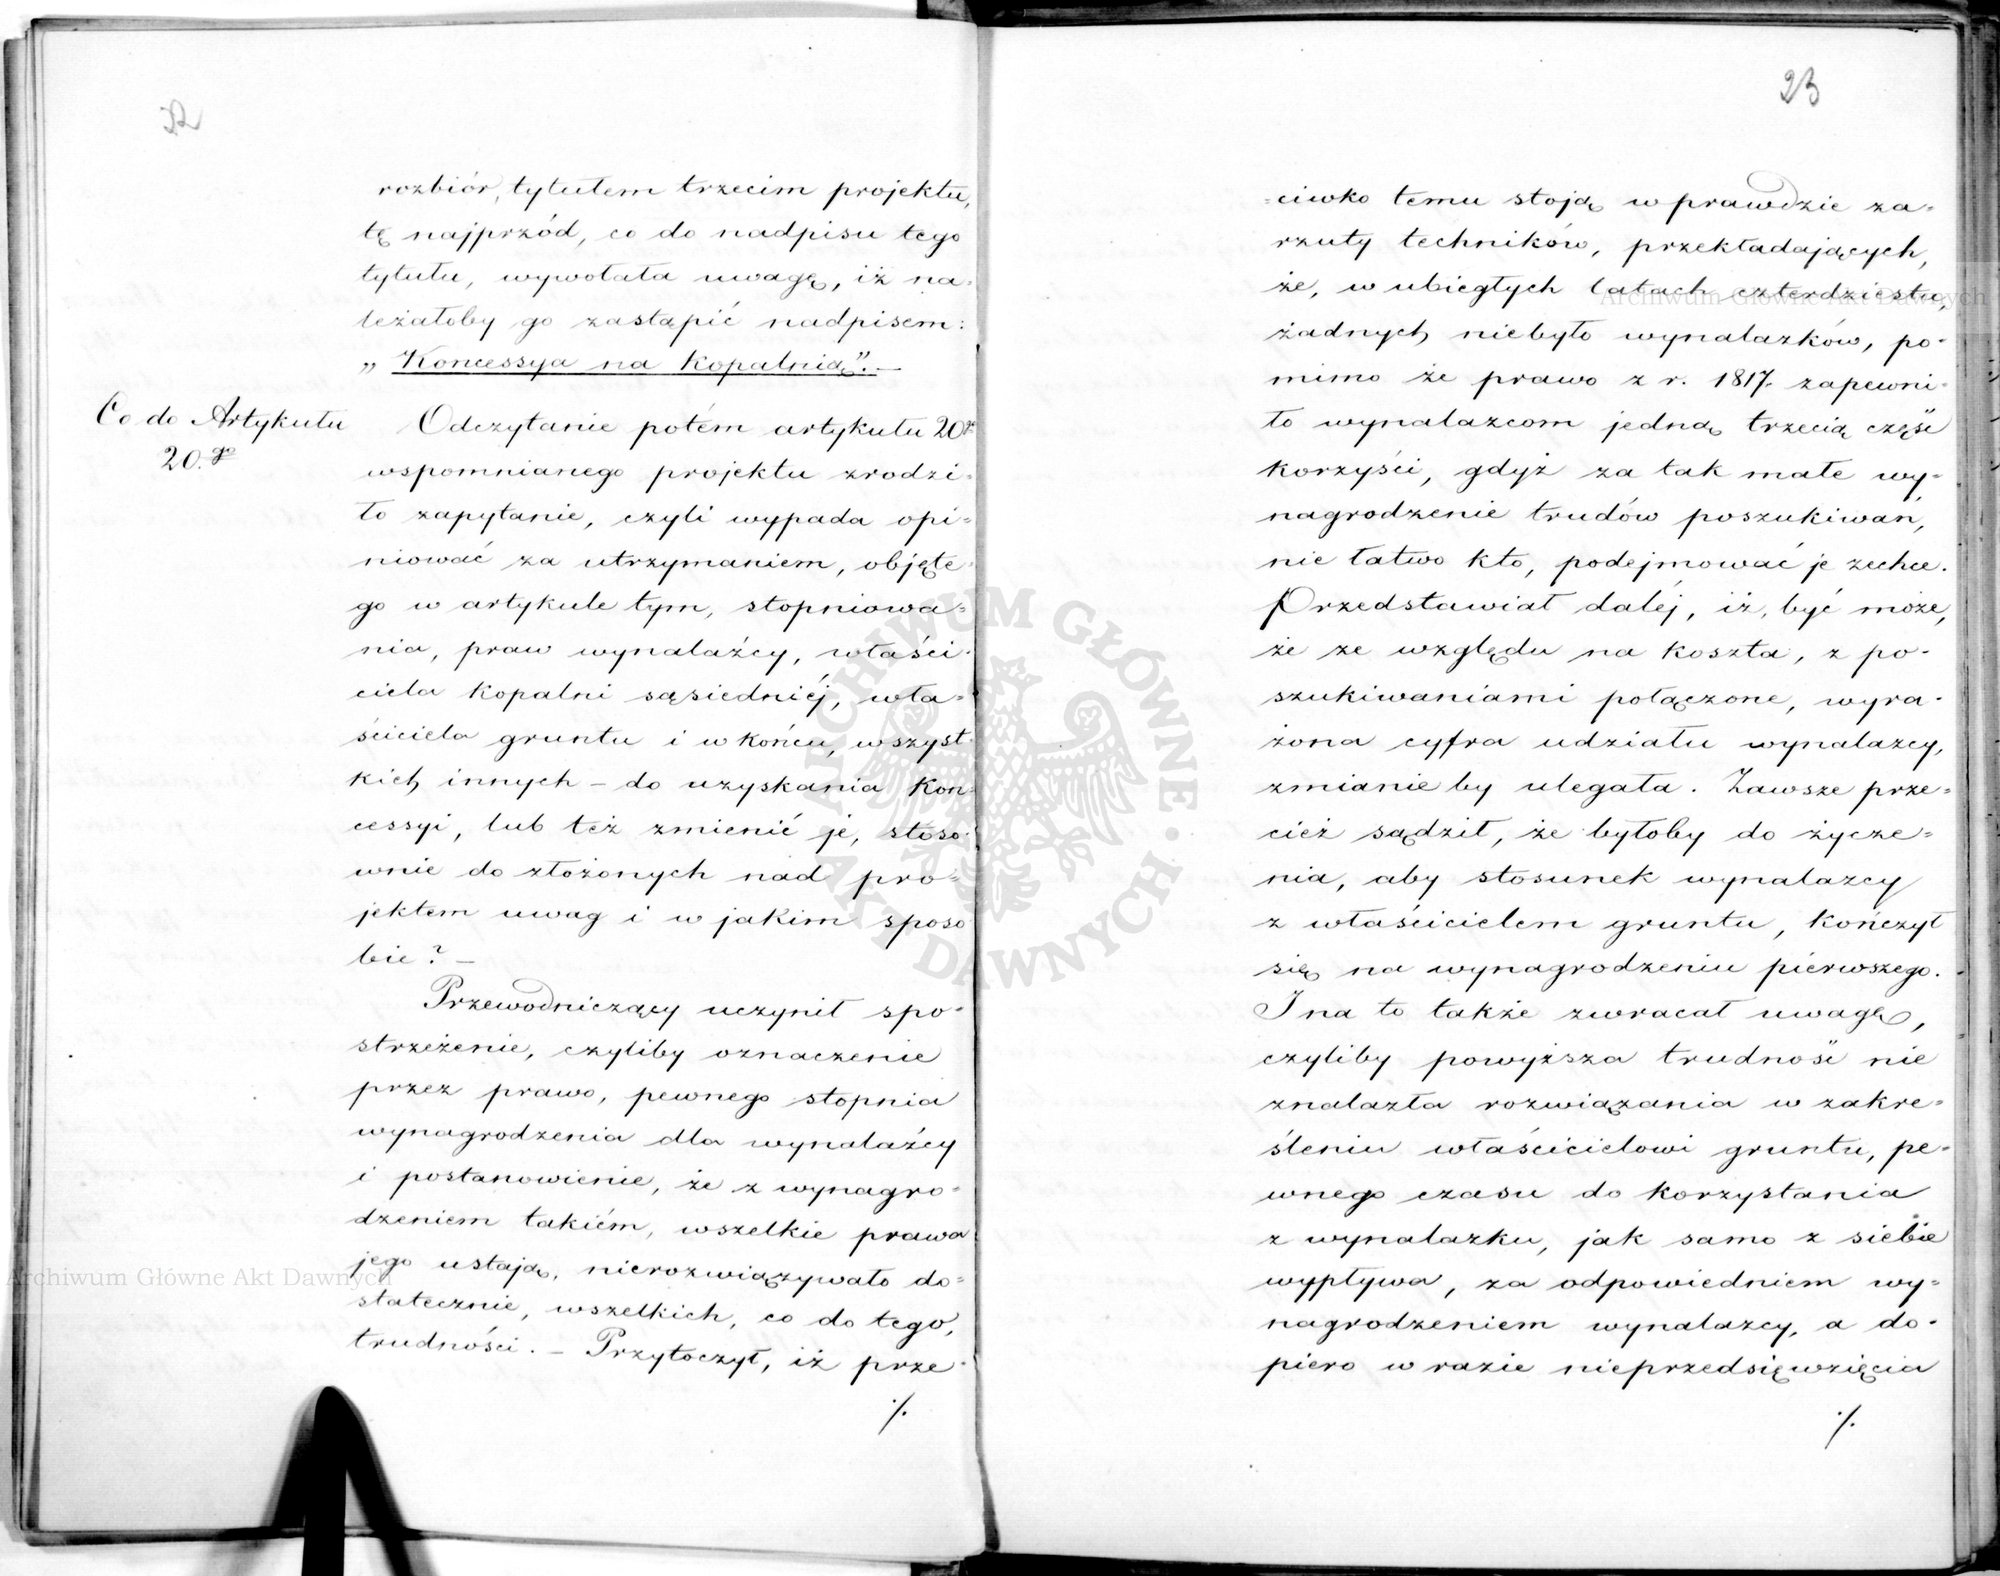 22
rozbiór, tytułem trzecim projektu,
tę najprzód, co do nadpisu tego
tytułu, wywołała uwagę, iż na-
leżałoby go zastąpić nadpisem:
„Koncessya na Kopalnią”. –
Co do Artykułu
20.go
Odczytanie potém artykułu 20go
wspomnianego projektu zrodzi-
ło zapytanie, czyli wypada opi-
niować za utrzymaniem, objęte-
go w artykule tym, stopniowa-
nia, praw wynalaźcy, właści-
ciela kopalni sąsiedniéj, wła-
ściciela gruntu i w końcu, wszyst-
kich innych – do uzyskania kon-
cessyi, lub też zmienić je, stoso-
wnie do złożonych nad pro-
jektem uwag i w jakim sposo
bie? –
Przewodniczący uczynił spo-
strzeżenie, czyliby oznaczenie
przez prawo, pewnego stopnia
wynagrodzenia dla wynalaźcy
i postanowienie, że z wynagro-
dzeniem takiém, wszelkie prawa
jego ustają, nierozwiązywało do-
statecznie, wszelkich, co do tego,
trudności. – Przytoczył, iż prze-
./.
23
=ciwko temu stoją wprawdzie za-
rzuty techników, przekładających,
że, w ubiegłych latach czterdziestu,
żadnych niebyło wynalazków, po-
mimo że prawo z r. 1817. zapewni-
ło wynalazcom jedną trzecią część
korzyści, gdyż za tak małe wy-
nagrodzenie trudów poszukiwań,
nie łatwo kto, podejmować je zechce.
Przedstawiał daléj, iż, być może,
że ze względu na koszta, z po-
szukiwaniami połączone, wyra-
żona cyfra udziału wynalazcy,
zmianie by ulegała. Zawsze prze-
cież sądził, że byłoby do życze-
nia, aby stosunek wynalazcy
z właścicielem gruntu, kończył
się na wynagrodzeniu pierwszego.
I na to także zwracał uwagę,
czyliby powyższa trudność nie
znalazła rozwiązania w zakre-
śleniu właścicielowi gruntu, pe-
wnego czasu do korzystania
z wynalazku, jak samo z siebie
wypływa, za odpowiedniem wy-
nagrodzeniem wynalazcy, a do-
piero w razie nieprzedsięwzięcia
./.
ARCHIWUM GŁÓWNE AKT DAWNYCH
Archiwum Główne Akt Dawnych
Archiwum Główne Akt Dawnych